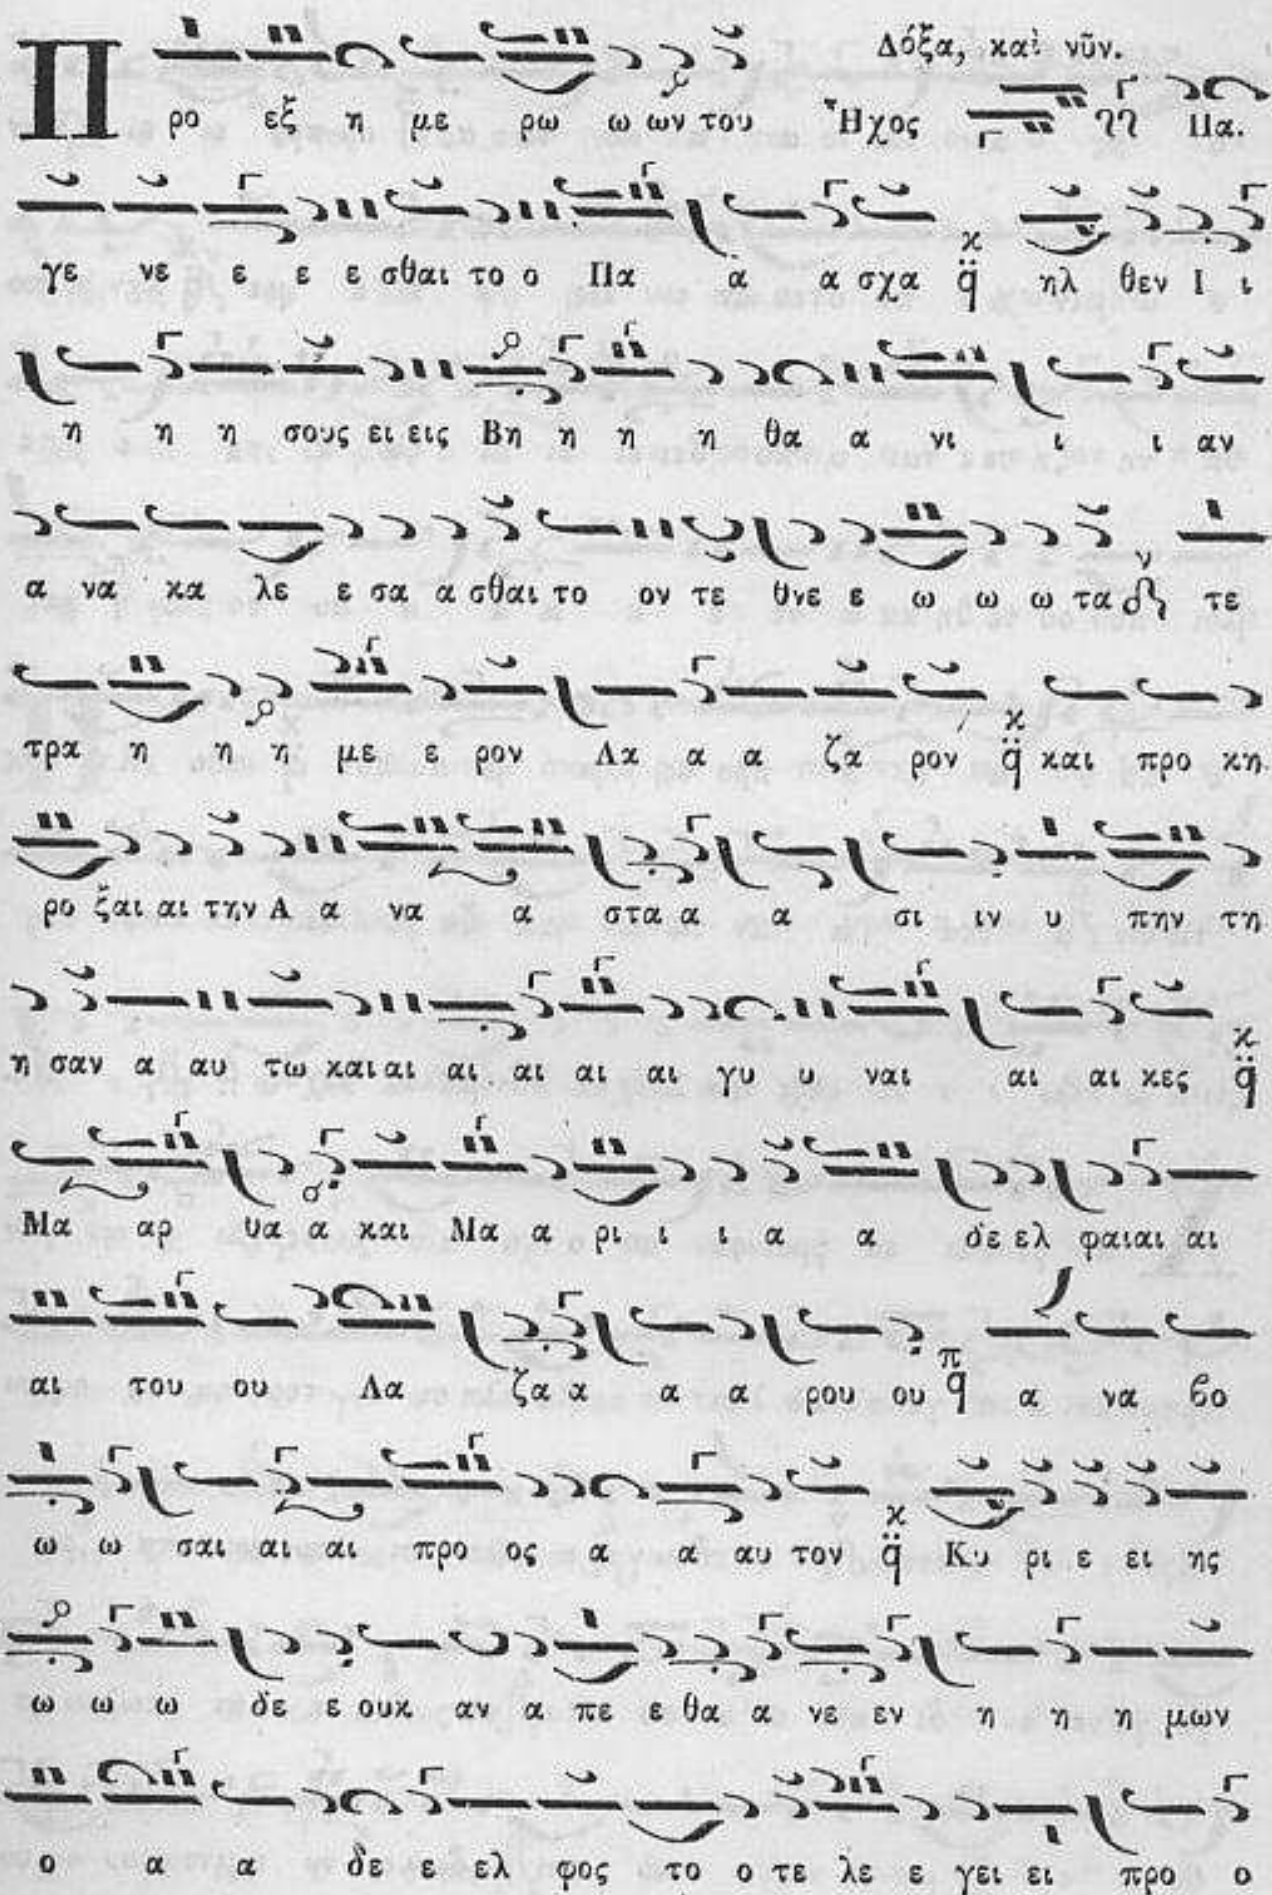 Δόξα, καὶ νῦν.
Π ρο εξ η με ρω ω ων του Ἦχος Πα.
γε νε ε ε ε σθαι το ο Πα α α σχα q̈ κ ηλ θεν Ι ι
η η η σους ει εις Βη η η η θα α νι ι ι αν
α να κα λε ε σα α σθαι το ον τε θνε ε ω ω ω τα ν τε
τρα η η η με ε ρον Λα α α ζα ρον q̈ κ και προ κη
ρο ξαι αι την Α α να α στα α α σι ιν υ πην τη
η σαν α αυ τω και αι αι αι αι αι γυ υ ναι αι αι κες q̈ κ
Μα αρ θα α και Μα α ρι ι ι α α δε ελ φαι αι αι
αι του ου Λα ζα α α α ρου ου q π α να βο
ω ω σαι αι αι προ ος α α αυ τον q̈ κ Κυ ρι ε ει ης
ω ω ω δε ε ουκ αν α πε ε θα α νε εν η η η μων
ο α α δε ε ελ φος το ο τε λε ε γει ει προ ο